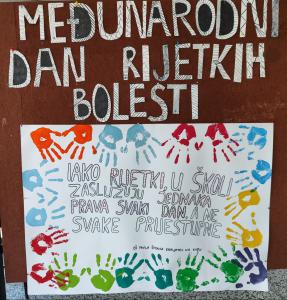 MEĐUNARODNI
DAN RIJETKIH
BOLESTI
IAKO RIJETKI, U ŠKOLI
ZASLUŽUJU JEDNAKA
PRAVA SVAKI DAN, A NE
SVAKE PRIJESTUPNE